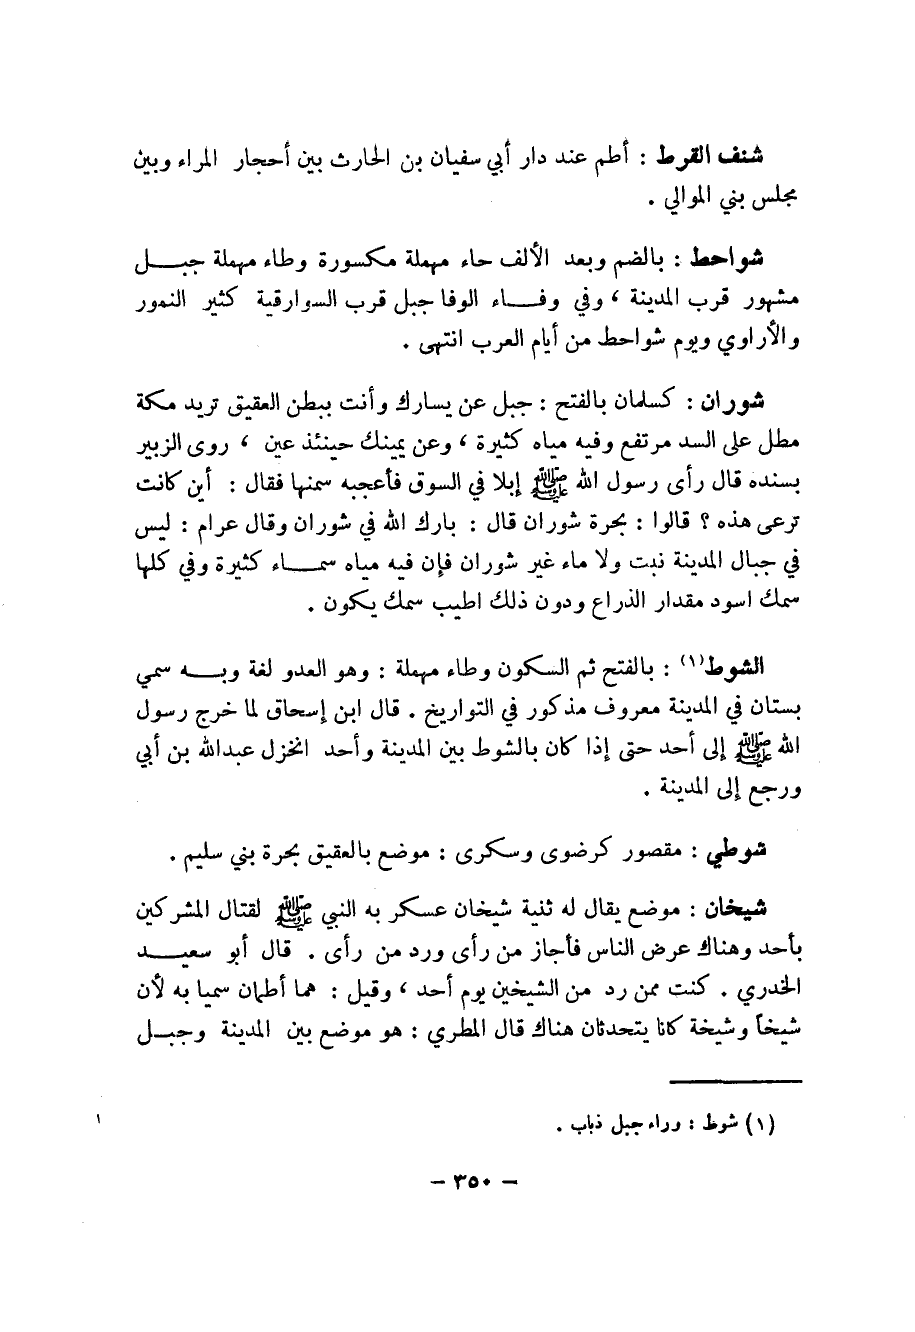 شنف القرط : أطم عند دار أبي سفيان بن الحارث بين أحجار المراء وبين
مجلس بني الموالي .
شواحط : بالضم وبعد الألف حاء مهملة مكسورة وطاء مهملة جبـــل
مشهور قرب المدينة ، وفي وفـــاء الوفا جبل قرب السوارقية كثير النمور
والأراوي ويوم شواحط من أيام العرب انتهى .
شوران : كسلمان بالفتح : جبل عن يسارك وأنت ببطن العقيق تريد مكة
مطل على السد مرتفع وفيه مياه كثيرة ، وعن يمينك حينئذ عين ، روى الزبير
بسنده قال رأى رسول الله ﷺ إبلا في السوق فأعجبه سمنها فقال : أين كانت
ترعى هذه ؟ قالوا : بحرة شوران قال : بارك الله في شوران وقال عرام : ليس
في جبال المدينة نبت ولا ماء غير شوران فإن فيه مياه سمـــاء كثيرة وفي كلها
سمك اسود مقدار الذراع ودون ذلك اطيب سمك يكون .
الشوط(١) : بالفتح ثم السكون وطاء مهملة : وهو العدو لغة وبـــه سمي
بستان في المدينة معروف مذكور في التواريخ . قال ابن إسحاق لما خرج رسول
الله ﷺ إلى أحد حتى إذا كان بالشوط بين المدينة وأحد انخزل عبدالله بن أبي
ورجع إلى المدينة .
شوطي : مقصور كرضوى وسكرى : موضع بالعقيق بحرة بني سليم .
شيخان : موضع يقال له ثنية شيخان عسكر به النبي ﷺ لقتال المشركين
بأحد وهناك عرض الناس فأجاز من رأى ورد من رأى . قال أبو سعيـــد
الخدري . كنت ممن رد من الشيخين يوم أحد ، وقيل : هما أطمان سميا به لأن
شيخاً وشيخة كانا يتحدثان هناك قال المطري : هو موضع بين المدينة وجبـل
(١) شوط : وراء جبل ذباب .
١
– ٣٥٠ –